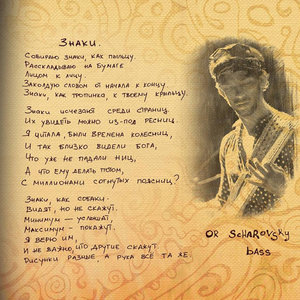 Знаки.
Собираю знаки, как пыльцу.
Раскладываю на бумаге
Лицом к лицу.
Заколдую словом от начала к концу
Знаки, как тропинка, к твоему крыльцу.
Знаки исчезают среди страниц.
Их увидеть можно из-под ресниц.
Я читала, были времена колесниц,
И так близко видели Бога,
Что уже не падали ниц,
А что ему делать потом,
С миллионами согнутых поясниц?
Знаки, как собаки.
Видят, но не скажут.
Минимум — услышат,
Максимум — покажут.
Я верю им,
И не важно, что другие скажут.
Рисунки разные, а рука всё та же.
OR SCHAROVSKY
bass